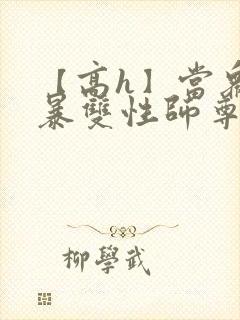 【高h】當
暴雙性師尊
柳學武